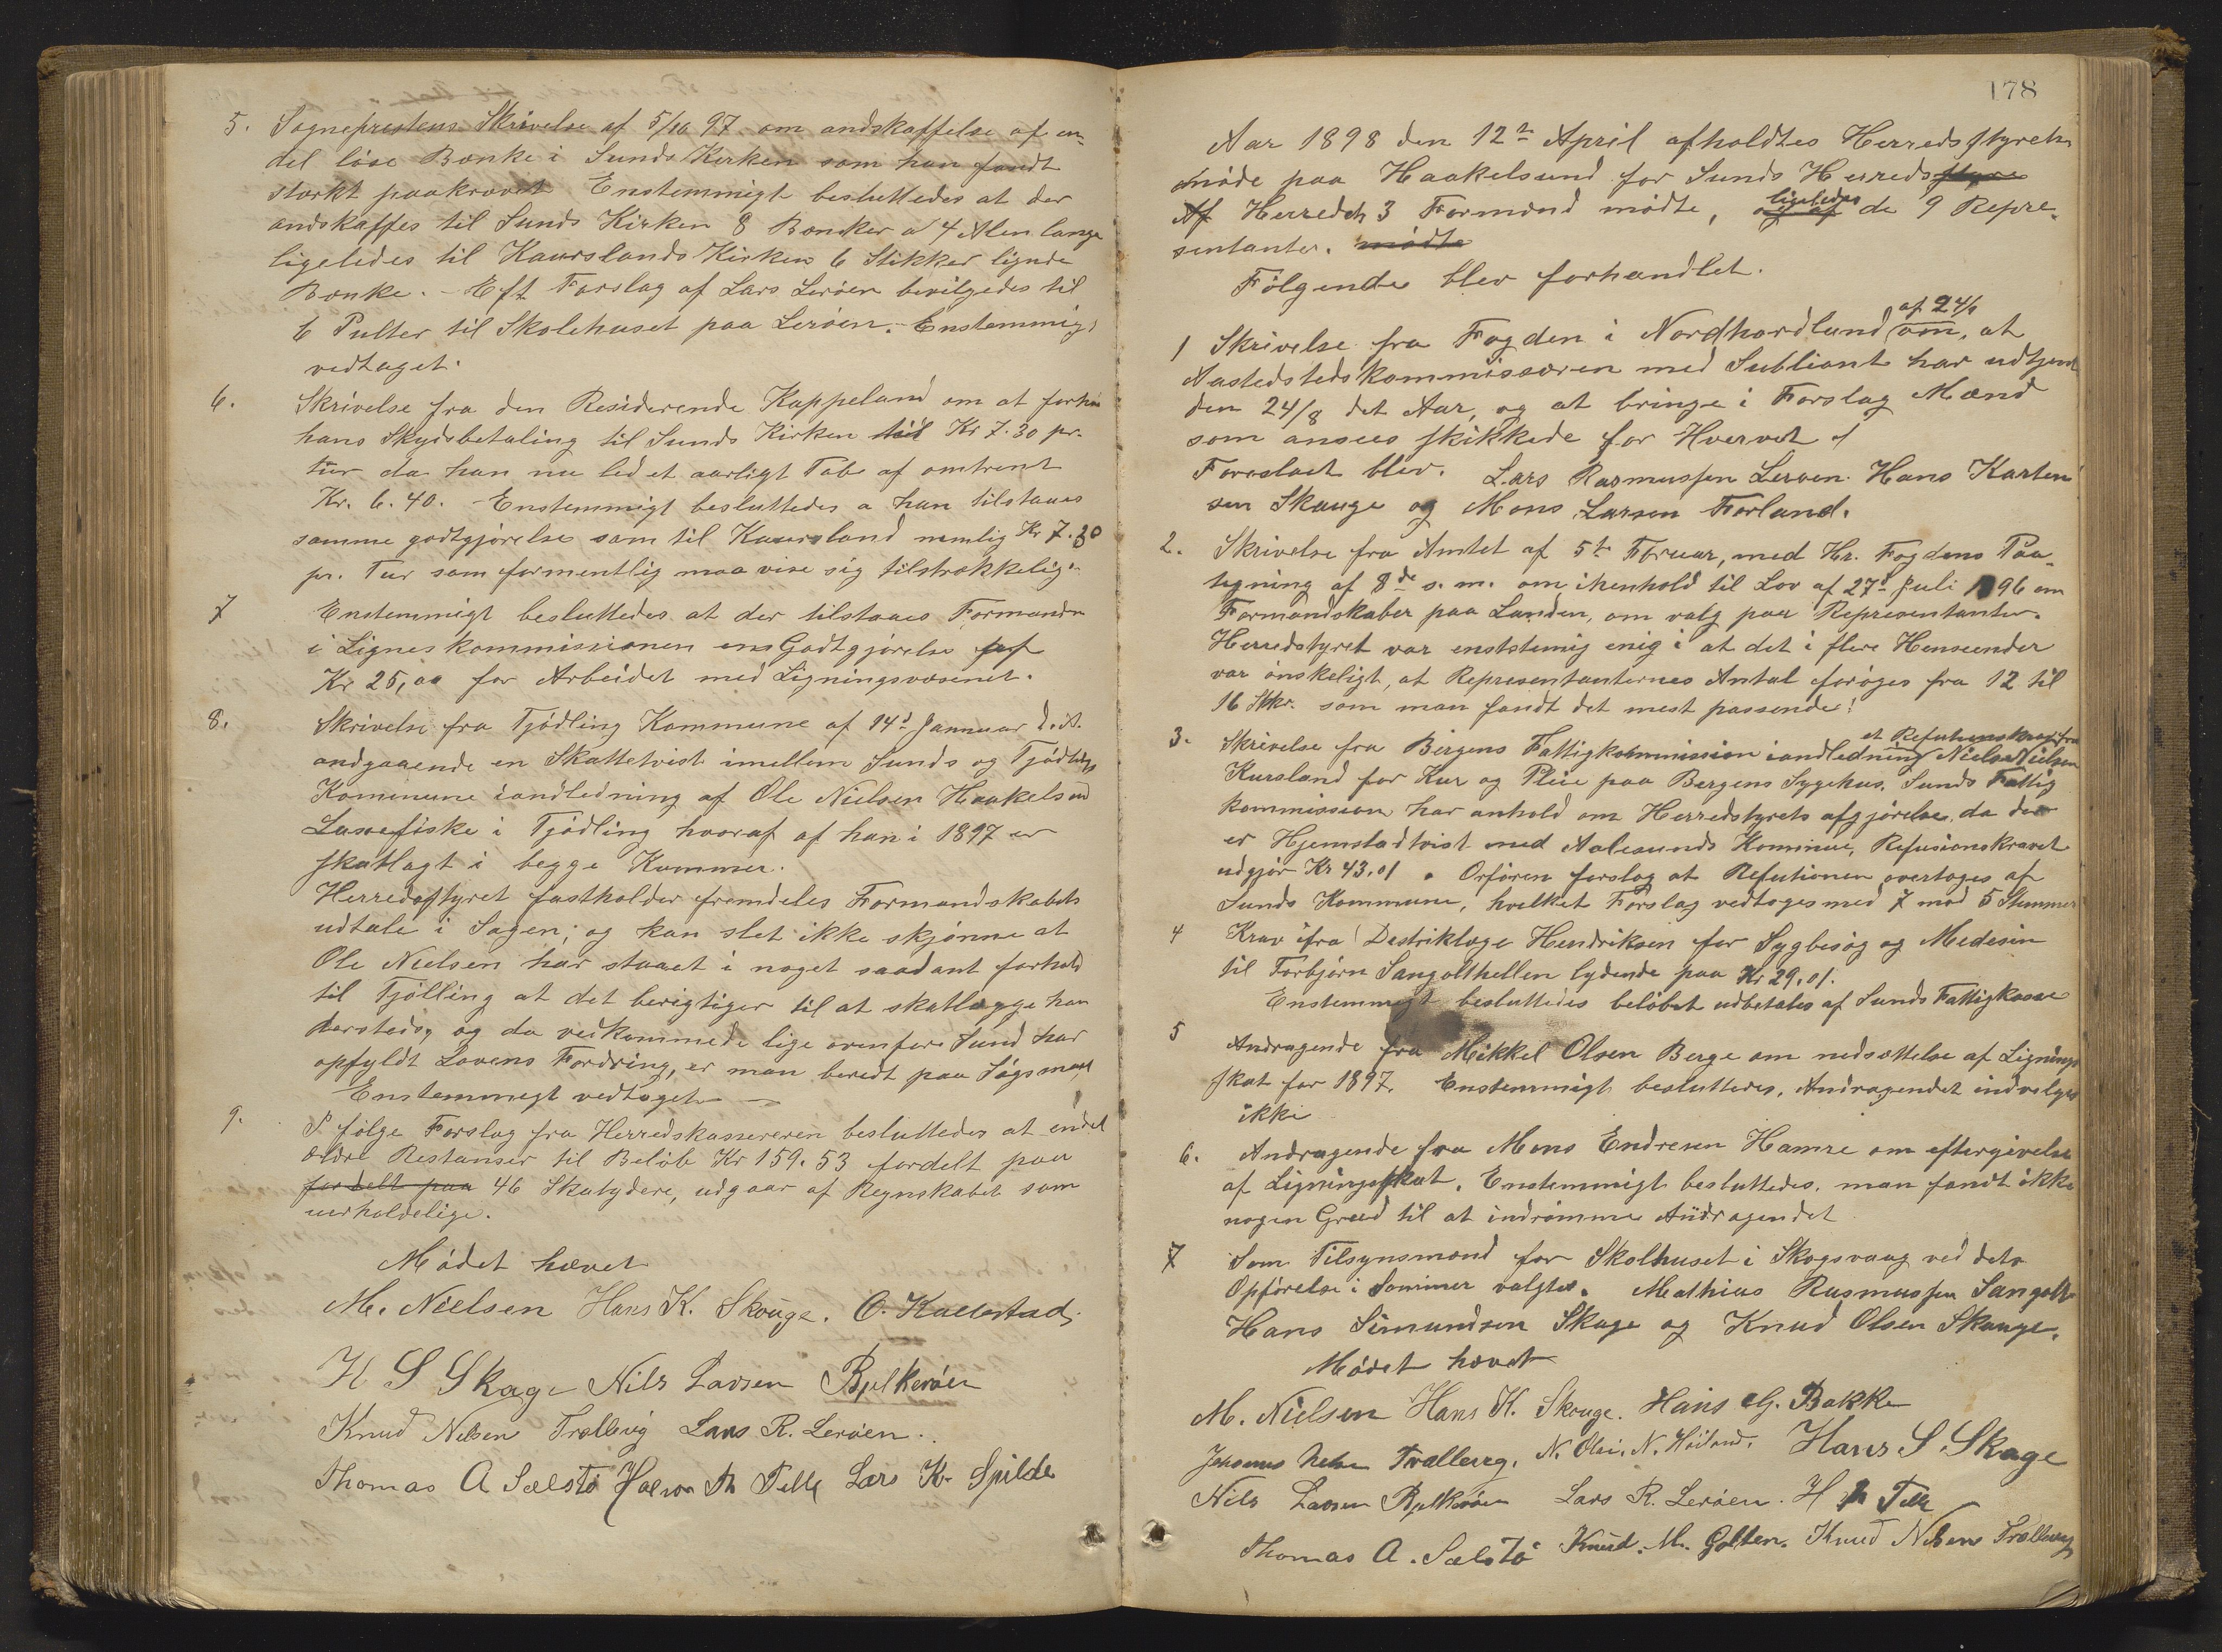 5. Sogneprestens Skrivelse af 5/10 97 om andskaffelse af en
del löse Bænke i Sunds Kirken som han fandt
stærkt paakrævet Enstemmigt besluttedes at der
andskaffes til Sunds Kirken 8 Bænker a 4 Alen lange
ligeledes til Kaurslands Kirken 6 Stikker lignde
Bænke. - Eft Forslag af Lars Leröen bevilgedes til
6 Pulter til Skolehuset paa Leröen. - Enstemmig
vedtaget.
6. Skrivelse fra den Residerende Kappeland om at forhøi
hans Skydsbetaling til Sunds Kirken til Kr 7.30 pr.
tur da han nu led et aarligt Tab af omtrent
Kr. 6.40. - Enstemmigt besluttedes a han tilstaaes
samme godtgjörelse som til Kaursland nemlig Kr 7.30
pr. Tur som formentlig maa vise sig tilstrækkelig.
7 Enstemmigt besluttedes at der tilstaaes Formandn
i Ligneskommissionen ens Godtgjörelse af
Kr 25,00 for Arbeidet med Ligningsvæsenet.
8. Skrivelse fra Tjödling Kommune af 14d Januar d.A.
andgaaende en Skattetvist imellem Sunds og Tjödlings
Kommune iandledning af Ole Nielsen Haakelsund
Laxefiske i Tjödling hvoraf af han i 1897 er
skatlagt i begge Kommer.
Herredsstyret fastholder fremdeles Formandskabets
udtale i Sagen; og kan slet ikke skjönne at
Ole Nielsen har staaet i noget saadant forhold
til Tjölling at det berigtiger til at skatlægge han
dersteds, og da vedkommede lige ovenfor Sund har
opfyldt Lovens Fordring, er man beredt paa Sögsmaal
Enstemmegt vedtaget -
9. I fölge Forslag fra Herredskassereren besluttedes at endel
ældre Restanser til Belöb Kr 159.53 fordelt paa
fordelt paa 46 Skatydere, udgaar af Regnskabet som
uerholdelige.
Mödet hævet
M. Nielsen Hans K. Skouge. O. Kallestad.
H S Skage Nils Larsen Bjelkeröen
Knud Nilsen Trællevig Lars R. Leröen.
Thomas A Sælstö Halvor Th Telle Lars K. Spilde
178
Aar 1898 den 12te April afholdtes Herredsstyrels
möde paa Haakelsund for Sunds Herredsstyre
Af Herredets 3 Formænd mödte, og af ligeledes de 9 Repre-
sentanter. mödte
Fölgende blev forhandlet.
1 Skrivelse fra Fogden i Nordhordland af 24/1 om, at
Aastedstedskommissæren med Subliant har udtjent
den 24/8 det Aar, og at bringe i Forslag Mænd
som ansees skikkede for Hvervet
Foreslaet blev. Lars Rasmussen Leroen. Hans Karten
sen Skauge og Mons Larsen Forland.
2. Skrivelse fra Amtet af 5te Fbruar, med Hr. Fogdens Paa-
tegning af 8de s.m. om ihenhold til Lov af 27d Juli 1896 om
Formandskaber paa Landen, om valg paa Representanter.
Herredstyret var enststemig enig i at det i flere Henseender
var önskeligt, at Representanternes Antal foröges fra 12 til
16 Stkr. som man fandt det mest passende!
3. Skrivelse fra Bergens Fattigkommission iandledning et Refusionskrav fra Niels Nielsen
Kursland for Kur og Pleie paa Bergens Sygehus. Sunds Fattig
kommission har anhold om Herredstyrets afgjörelse, da der
er Hjemstadtvist med Aalesunds Kommune, Refusionskravet
udgjör Kr 43.01. Orfören forslog at Refutionen overtages af
Sunds Kommune, hvilket Forslag vedtoges med 7 mod 5 Stemmer
4 Krav ifra Destriktlæge Hendriksen for Sygbesög og Medesin
til Torbjörn Sangolthellen lydende paa Kr 29.01.
Enstemmegt besluttedes belöbet udbetales af Sunds Fattigkasse
5 Andragende fra Mikkel Olsen Berge om nedsættelse af Lignings
skat for 1897. Enstemmigt besluttedes, Andragendet indvelges
ikke
6. Andragende fra Mons Endresen Hamre om eftergivelse
af Ligningsskat. Enstemmigt besluttedes, man fandt ikke
nogen Grund til at indrömme Andragendet
7 Som Tilsynsmænd for Skolhuset i Skogsvaag ved dets
Opförelse i Sommer valgtes. Mathias Rasmussen Sangolt
Hans Simundsen Skage og Knud Olsen Skauge.
Mödet hævet
M. Nielsen Hans K. Skouge. Hans G. Bakke
Johannes Nelsen Trællevig. N. Olai. N. Höiland. Hans S. Skage
Nils Larsen Bjelkeröen Lars R. Leröen. H Th Telle
Thomas A. Sælstö Knud. M. Golten. Knud Nilsen Trællevig